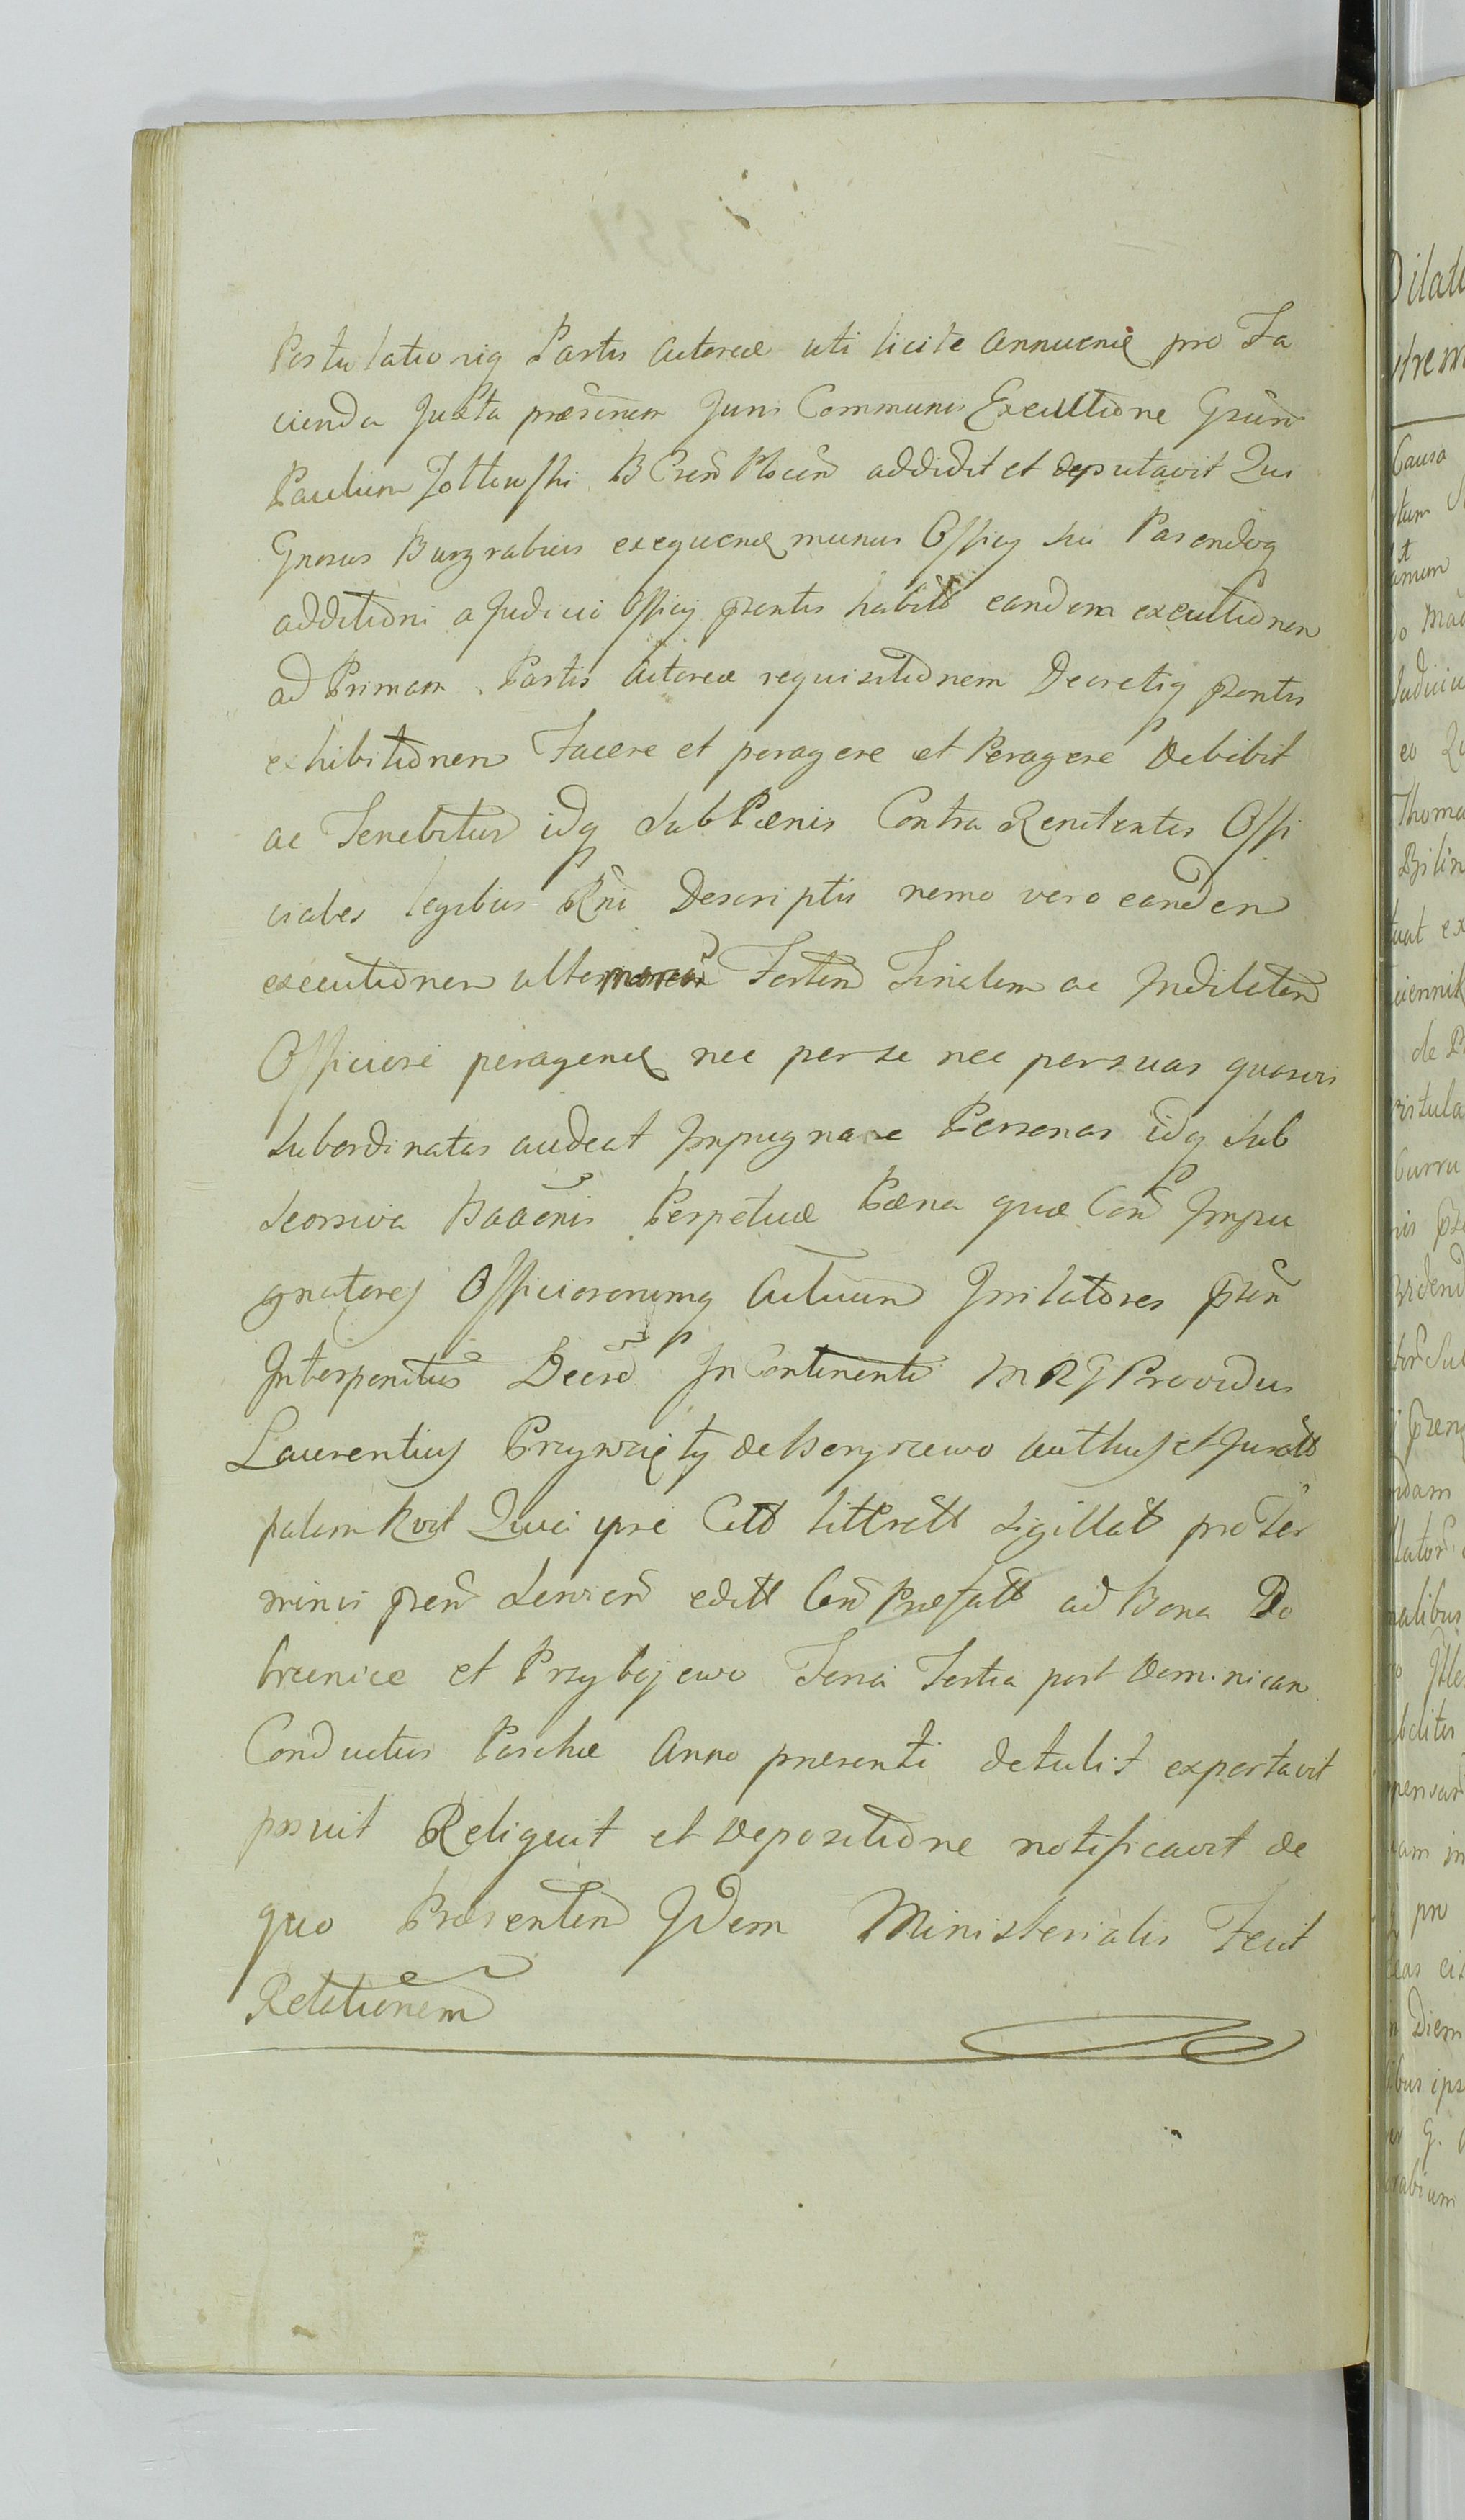 Postulationiq Partis Actoreæ uti licite annuend pro Fa
cienda Juxta præscrien Juris Communis Executione Gsum
Paulum Zoltowski B Cren Plocen addidit et deputavit Qui
Gnosus Burgrabius exequend munus Officij sui Parendoq
additioni a Judicio Officij psentis habitt eandem executionem
ad Primam Partis Actoreæ requisitionem Decretiq psentis
exhibitionem Facere et peragere et Peragere Debebit
ac Tenebitur idq Sub Pænis Contra Renitentes Offi
ciales legibus Rni Descriptis nemo vero eandem
executionem Tertem Finalem ac Indilatam
Officiose peragend nec per se nec per suas quasvis
Subordinatas audeat Impugnare Personas idq Sub
Seorsiva Baaenis Perpetuæ Pæna quæ Con Impu
gnatores Officiosorumq Actuum Irritatores psen
Interponitur Decro In Continenti MRJ Providus
Laurentius Przywzięty de authus et Juratt
palam Rvit Quia ipse Citt littratt sigillatt pro Ter
minis psen servien editt Con Præfatt ad Bona Do
brzenice et Przybojewo Feria Tertia post Dominicam
Conductus Paschæ Anno præsenti detulit exportavit
posuit Reliquit et Depositione notificavit de
quo Præsentem Idem Ministerialis Fecit
Relationem
Dilati
Causa
tum
Judiciu
eo
Thoma
tuat ex
de P
nalibus
pro
Diem
bus ips
rabium